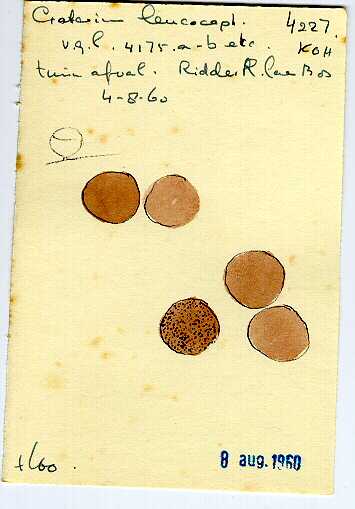 Craterium leucocept. 4227.
vgl. 4175.a-b etc. KOH
tuin afval. Ridder R. lae Bos
4-8-60
8 aug. 1960